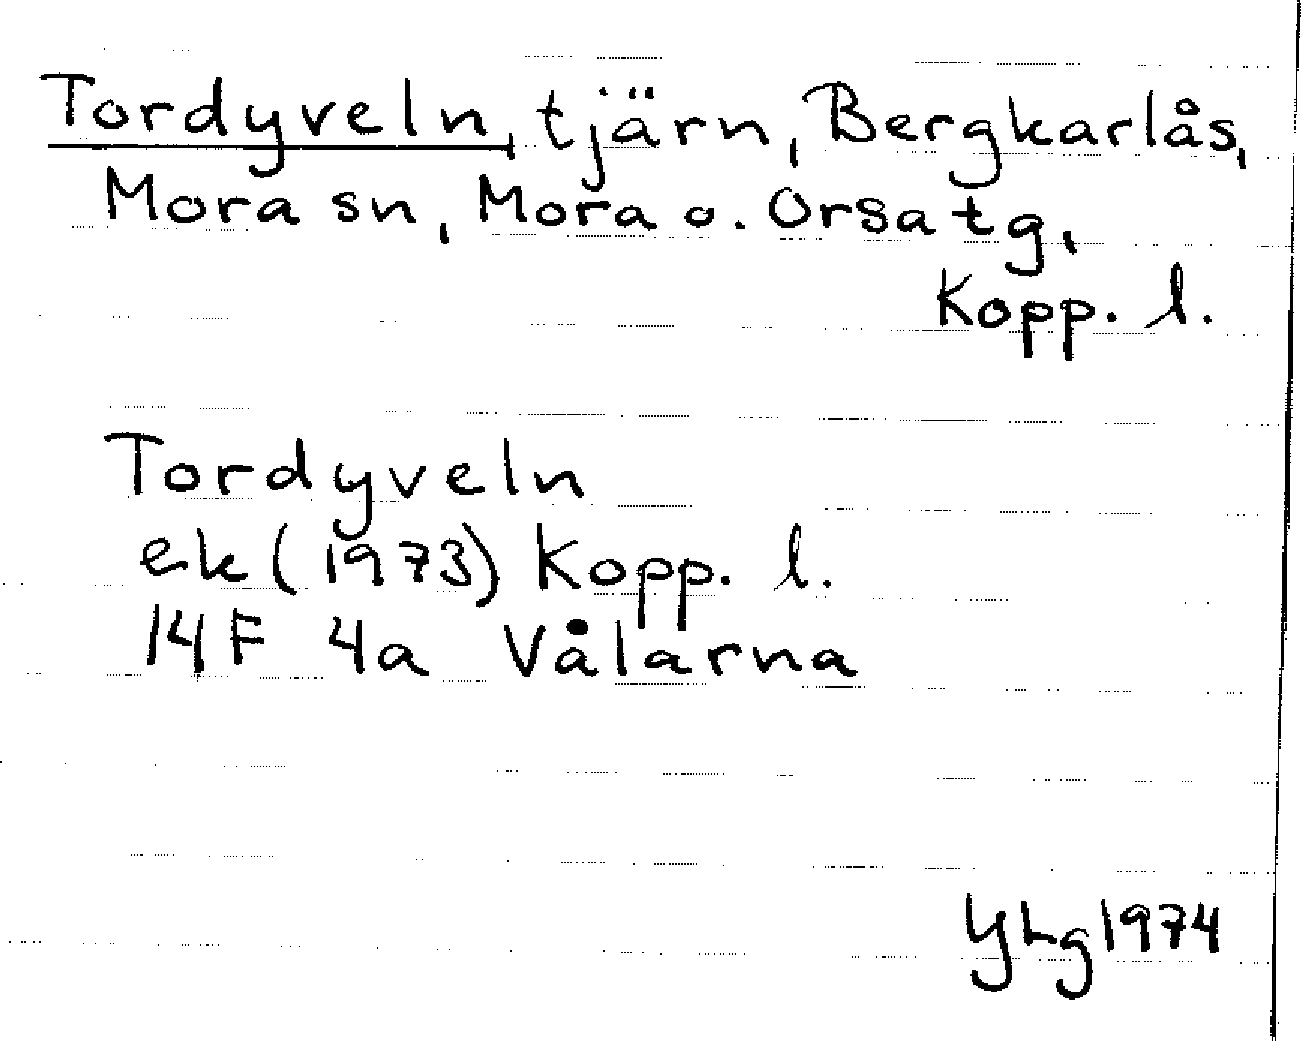 Tordyveln, tjärn, Bergkarlås,
Mora sn, Mora o. Orsa tg,
Kopp. l.
Tordyveln
ek (1973) Kopp. l.
14F 4a Vålarna
YLg 1974